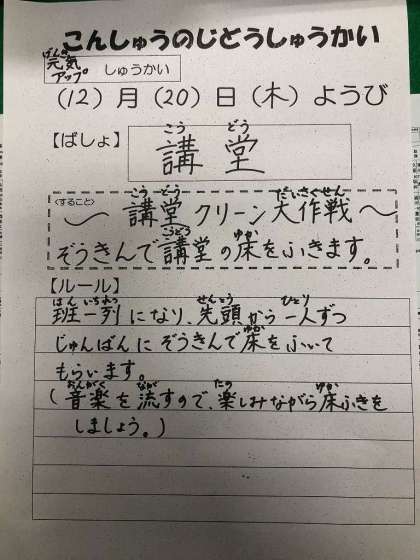 こんしゅうのじどうしゅうかい
げんき
元気
アップ。 しゅうかい
(12)月(20)日(木)ようび
【ばしょ】
こう どう
講堂
<すること>
こう どう だいさくせん
～講堂クリーン大作戦～
こうどう ゆか
ぞうきんで講堂の床をふきます。
【ルール】
はん いちれつ せんとう ひとり
班一列になり、先頭から一人ずつ
ゆか
じゅんばんにぞうきんで床をふいて
もらいます。
おんがく なが たの ゆか
(音楽を流すので、楽しみながら床ふきを
しましょう。)